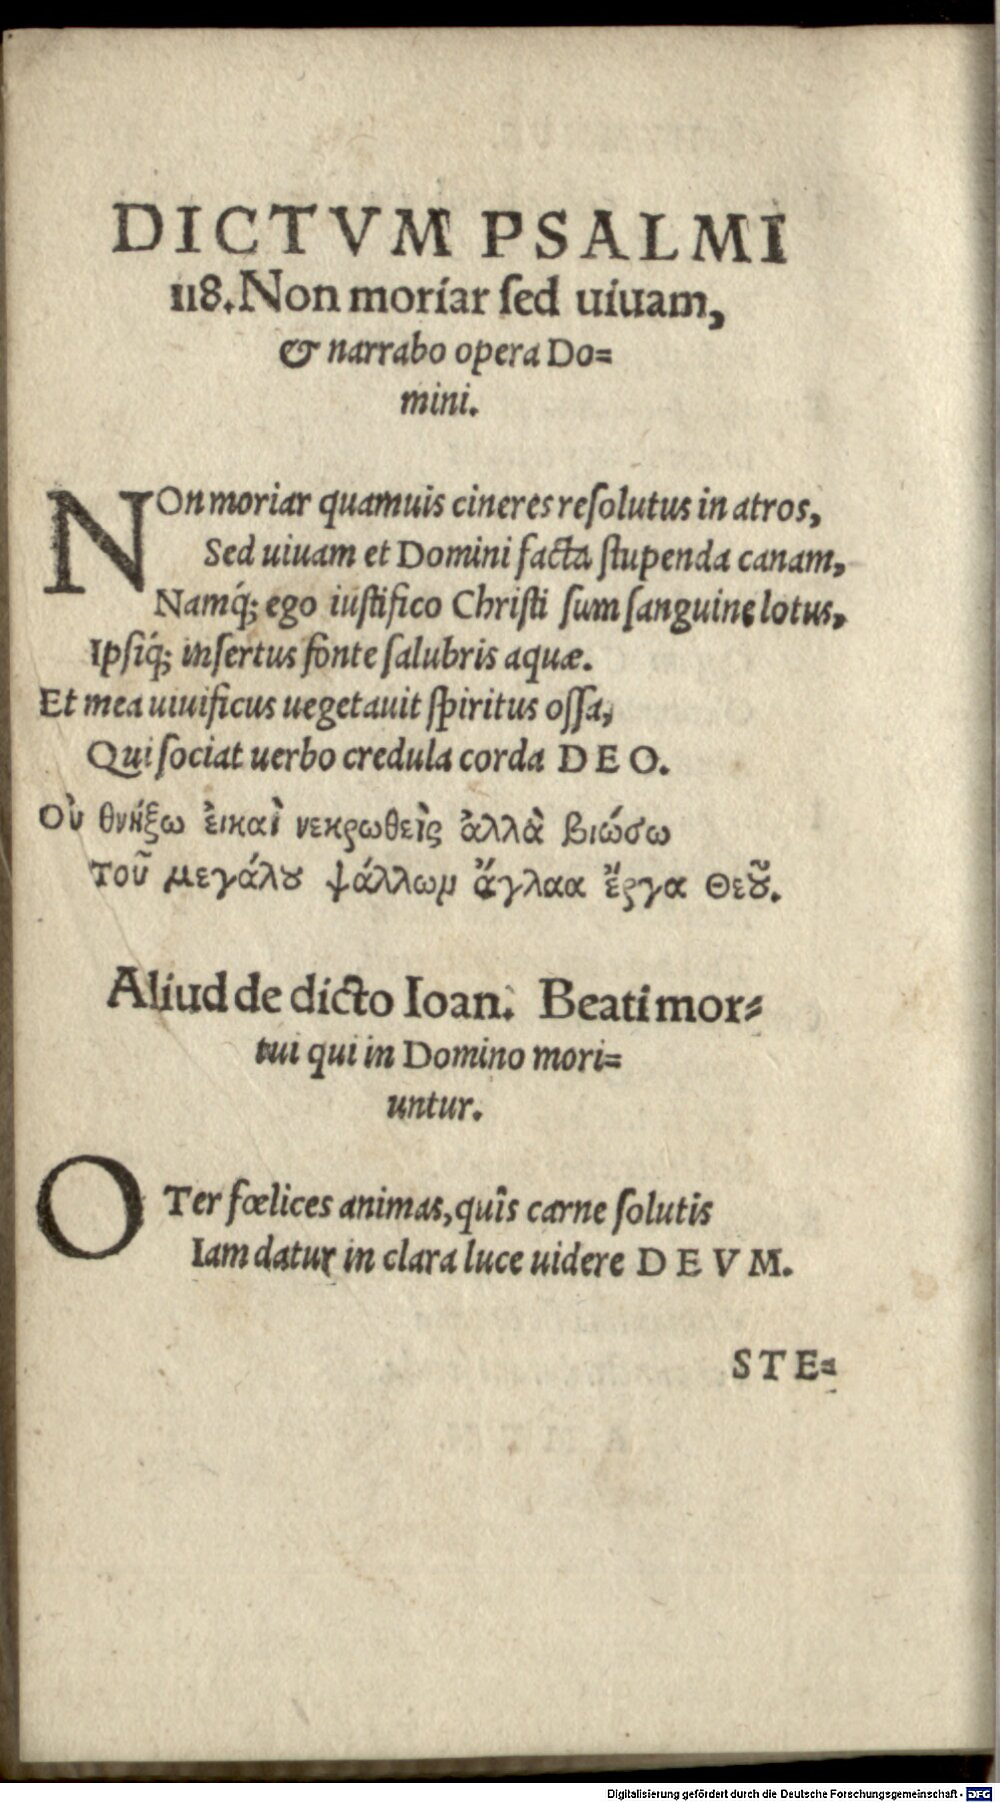 DICTVM PSALMI
118. Non moriar ſed uiuam,
& narrabo opera Do=
mini.
NOn moriar quamuis cineres reſolutus in atros,
Sed uiuam et Domini facta ſtupenda canam,
Namq́; ego iuſtifico Chriſti ſum ſanguine lotus,
Ipſiq́; inſertus fonte ſalubris aquæ.
Et mea uiuificus uegetauit ſpiritus oſſa,
Qui ſociat uerbo credula corda DEO.
Οὐ θνήξω ἐικαὶ νεκρωθεὶς ἀλλὰ βιώσω
Τοῦ μεγάλȣ ψάλλωμ ἄγλαα ἔργα Θεȣ͂.
Aliud de dicto Ioan. Beati mor=
tui qui in Domino mori=
untur.
O Ter fœlices animas, quîs carne ſolutis
Iam datur in clara luce uidere DEVM.
STE=
Digitalisierung gefördert durch die Deutsche Forschungsgemeinschaft - DFG